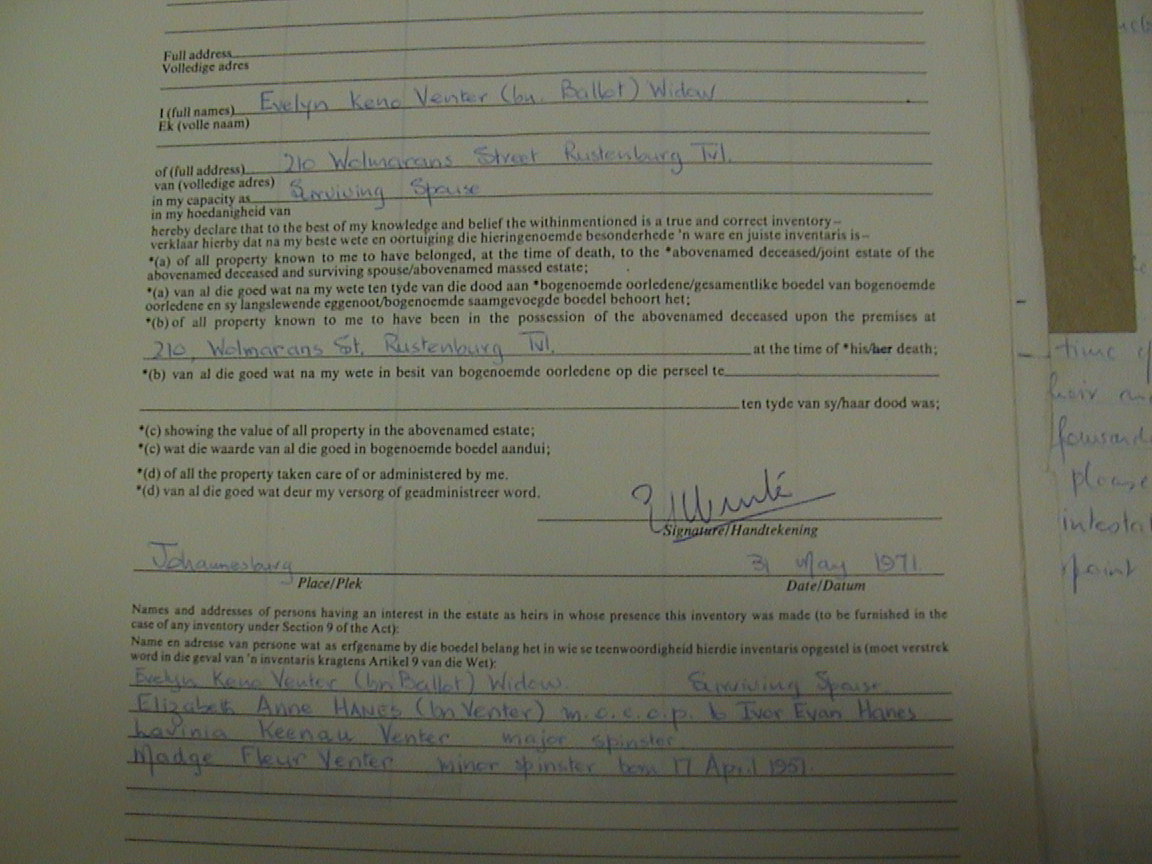 Full address
Volledige adres
I (full names) Evelyn Keno Venter (bn. Ballot) Widow
Ek (volle naam)
of (full address) 210 Wolmarans Street Rustenburg Tvl.
van (volledige adres)
in my capacity as Surviving Spouse
in my hoedanigheid van
hereby declare that to the best of my knowledge and belief the withinmentioned is a true and correct inventory–
verklaar hierby dat na my beste wete en oortuiging die hieringenoemde besonderhede 'n ware en juiste inventaris is–
*(a) of all property known to me to have belonged, at the time of death, to the *abovenamed deceased/joint estate of the
abovenamed deceased and surviving spouse/abovenamed massed estate;
*(a) van al die goed wat na my wete ten tyde van die dood aan *bogenoemde oorledene/gesamentlike boedel van bogenoemde
oorledene en sy langslewende eggenoot/bogenoemde saamgevoegde boedel behoort het;
*(b) of all property known to me to have been in the possession of the abovenamed deceased upon the premises at
210, Wolmarans St, Rustenburg Tvl. at the time of *his/her death;
*(b) van al die goed wat na my wete in besit van bogenoemde oorledene op die perseel te
ten tyde van sy/haar dood was;
*(c) showing the value of all property in the abovenamed estate;
*(c) wat die waarde van al die goed in bogenoemde boedel aandui;
*(d) of all the property taken care of or administered by me.
*(d) van al die goed wat deur my versorg of geadministreer word.
Signature/Handtekening
Johannesburg 31 May 1971.
Place/Plek Date/Datum
Names and addresses of persons having an interest in the estate as heirs in whose presence this inventory was made (to be furnished in the
case of any inventory under Section 9 of the Act):
Name en adresse van persone wat as erfgename by die boedel belang het in wie se teenwoordigheid hierdie inventaris opgestel is (moet verstrek
word in die geval van 'n inventaris kragtens Artikel 9 van die Wet):
Evelyn Keno Venter (bn Ballot) Widow. Surviving Spouse.
Elizabeth Anne HANES (bn Venter) m.c.c.o.p. to Ivor Evan Hanes
Lavinia Keenau Venter major spinster
Madge Fleur Venter minor spinster born 17 April 1957.
time
please
point